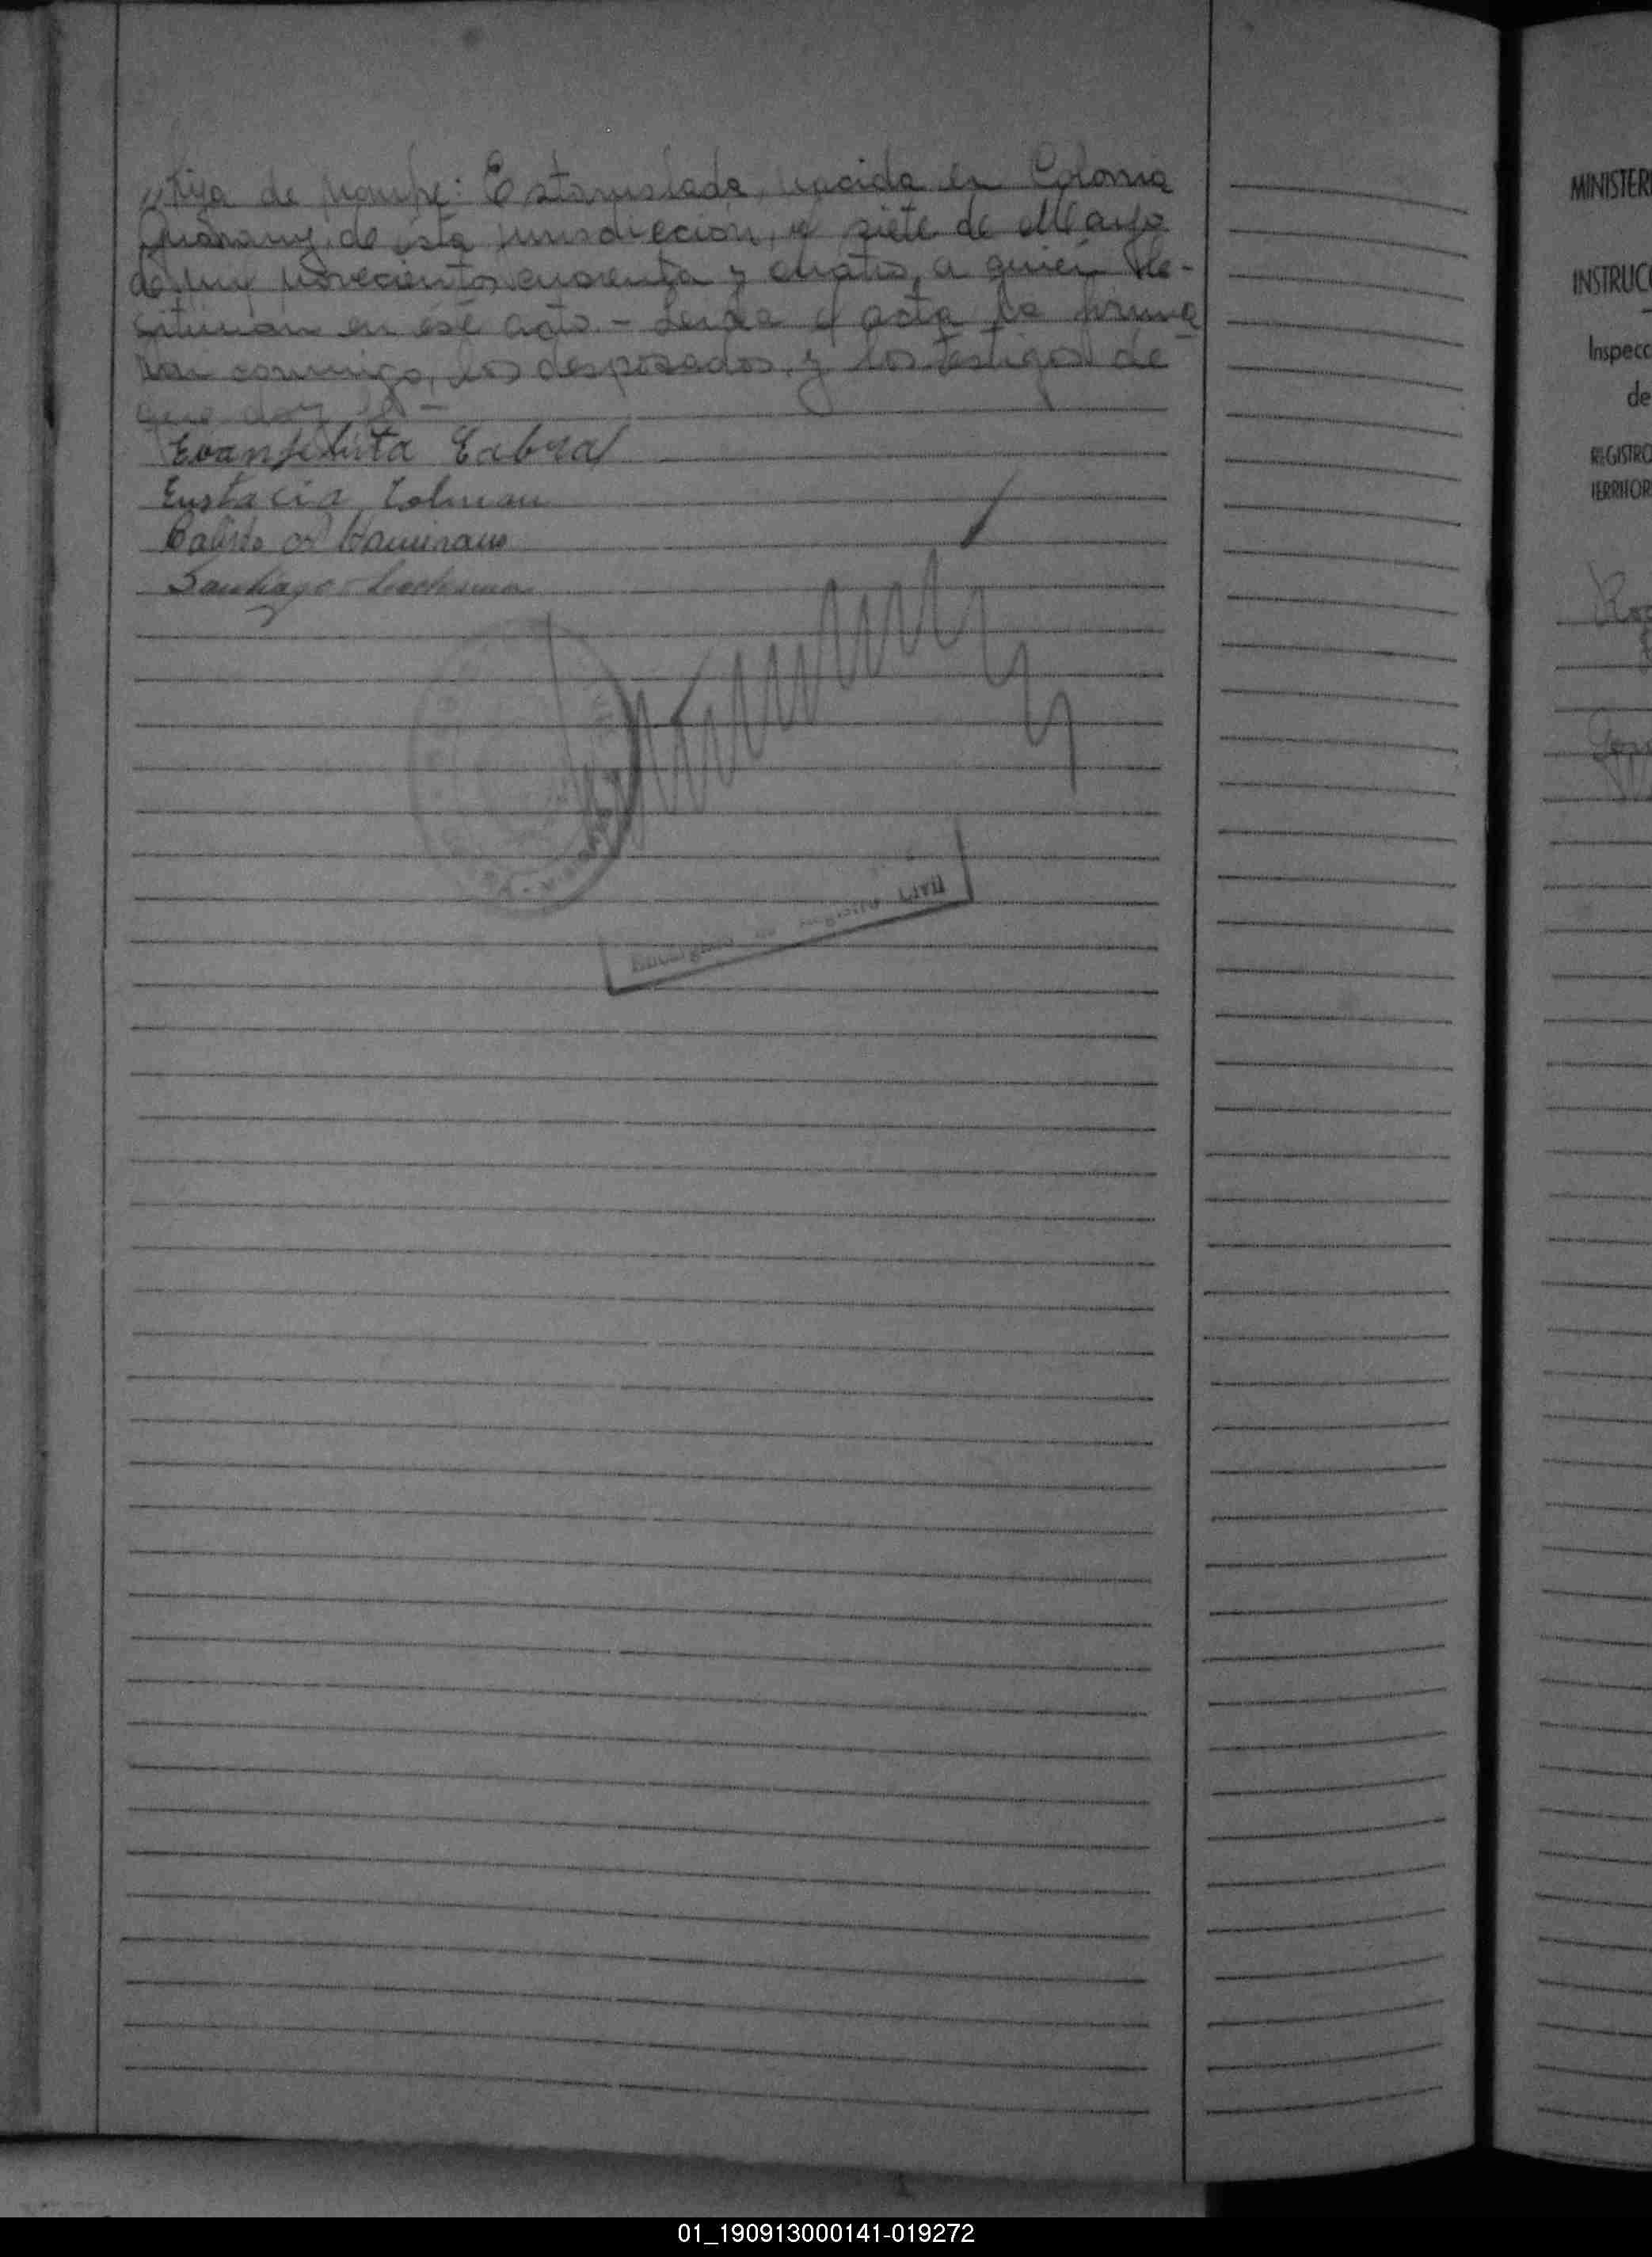 hija de nombre: Estanislada, nacida en Colonia
Guarany, de ésta jurisdicción, el siete de Mayo
de mil novecientos cuarenta y cuatro, a quien le-
gitiman en ése acto.- Leída el acta la firma
ron conmigo, los desposados, y los testigos de
que doy fé-
Evangelista Cabral
Eustacia Colman
Calisto
Santiago
Encargado de Registro Civil
MINISTERI
INSTRUCC
Inspecc
de
REGISTRO
TERRITOR
01_190913000141-019272